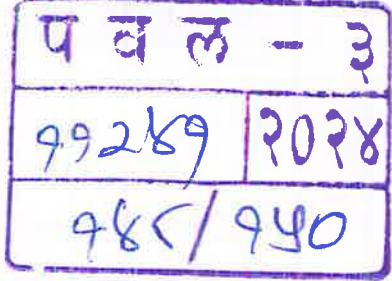 प व ल - ३
११२४१ २०२४
१४८/१५०